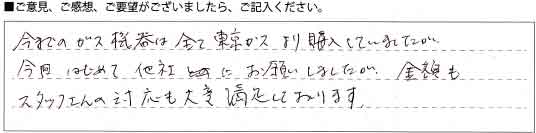 ■ご意見、ご感想、ご要望がございましたら、ご記入ください。
今までのガス機器は全て東京ガスより購入していましたが、
今回はじめて他社にお願いしましたが、金額も
スタッフさんの対応も大変満足しております。